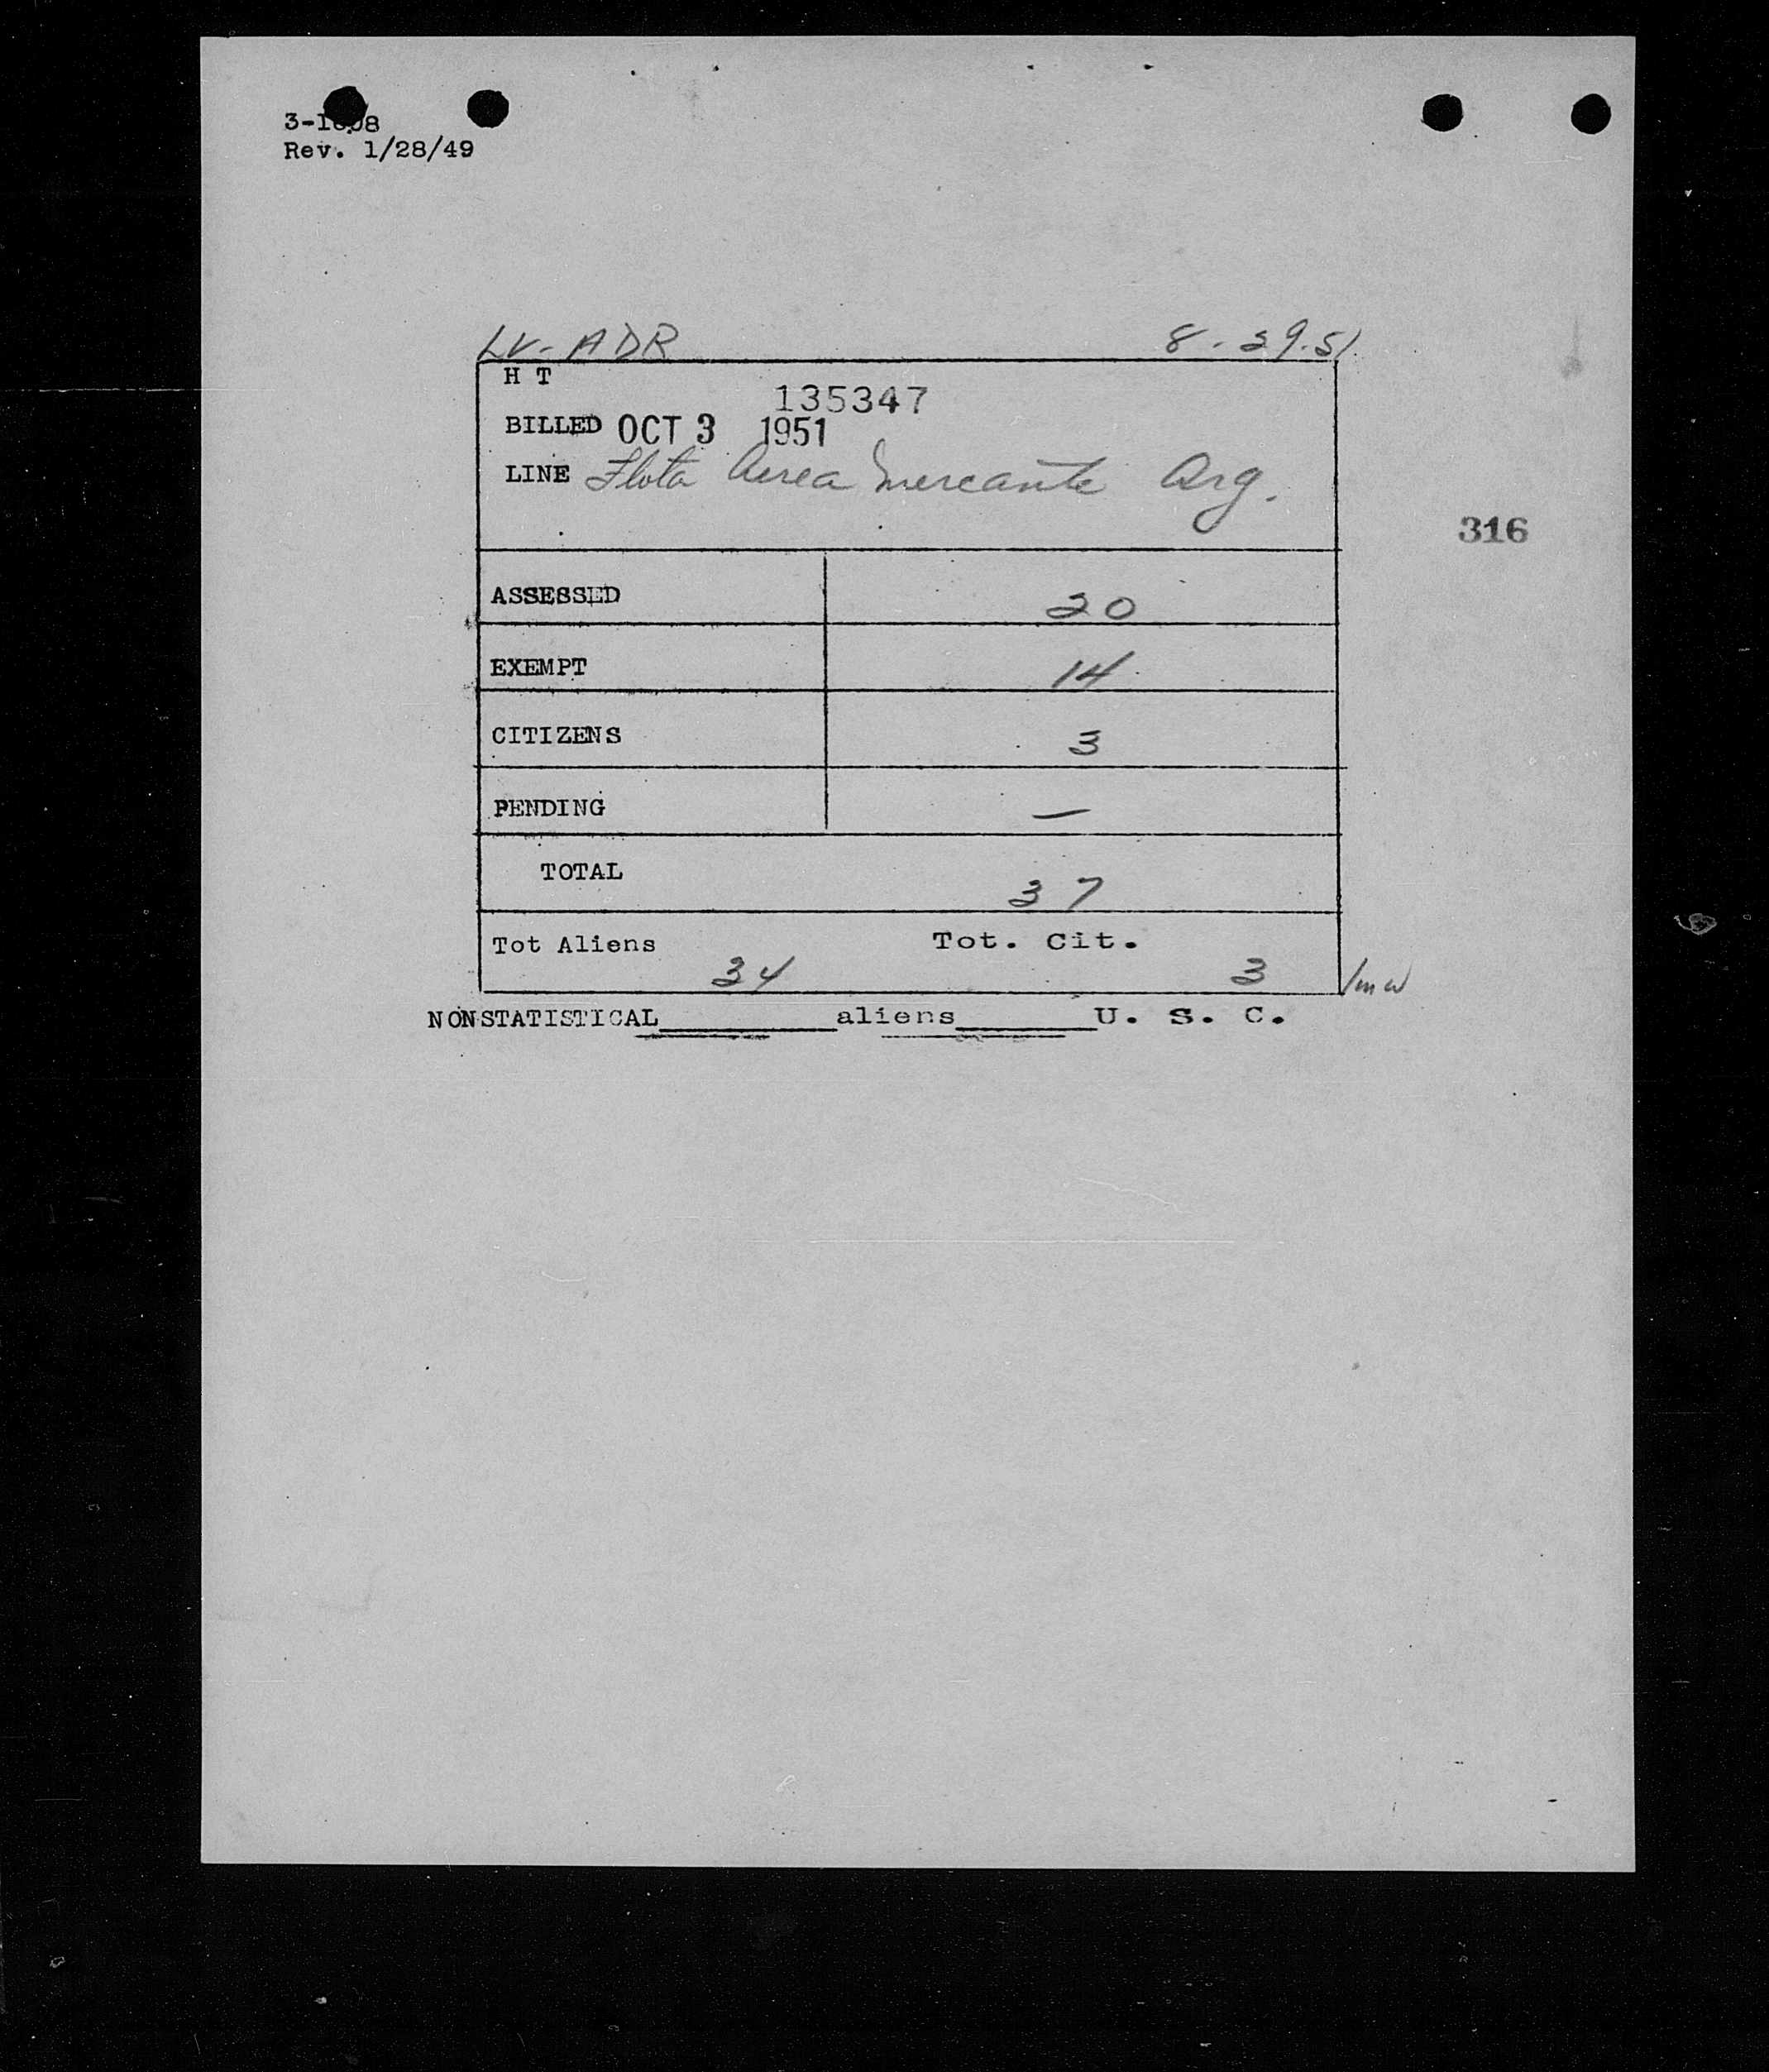 Rev. 1/28/49
LV-ADR 8-29-51.
H T
135347
BILLED OCT 3 1951
LINE Flota Aerea Mercante Arg.
316
ASSESSED 20
EXEMPT 14
CITIZENS 3
PENDING —
TOTAL 37
Tot Aliens 34 Tot. Cit. 3
NONSTATISTICAL________aliens______U. S. C.